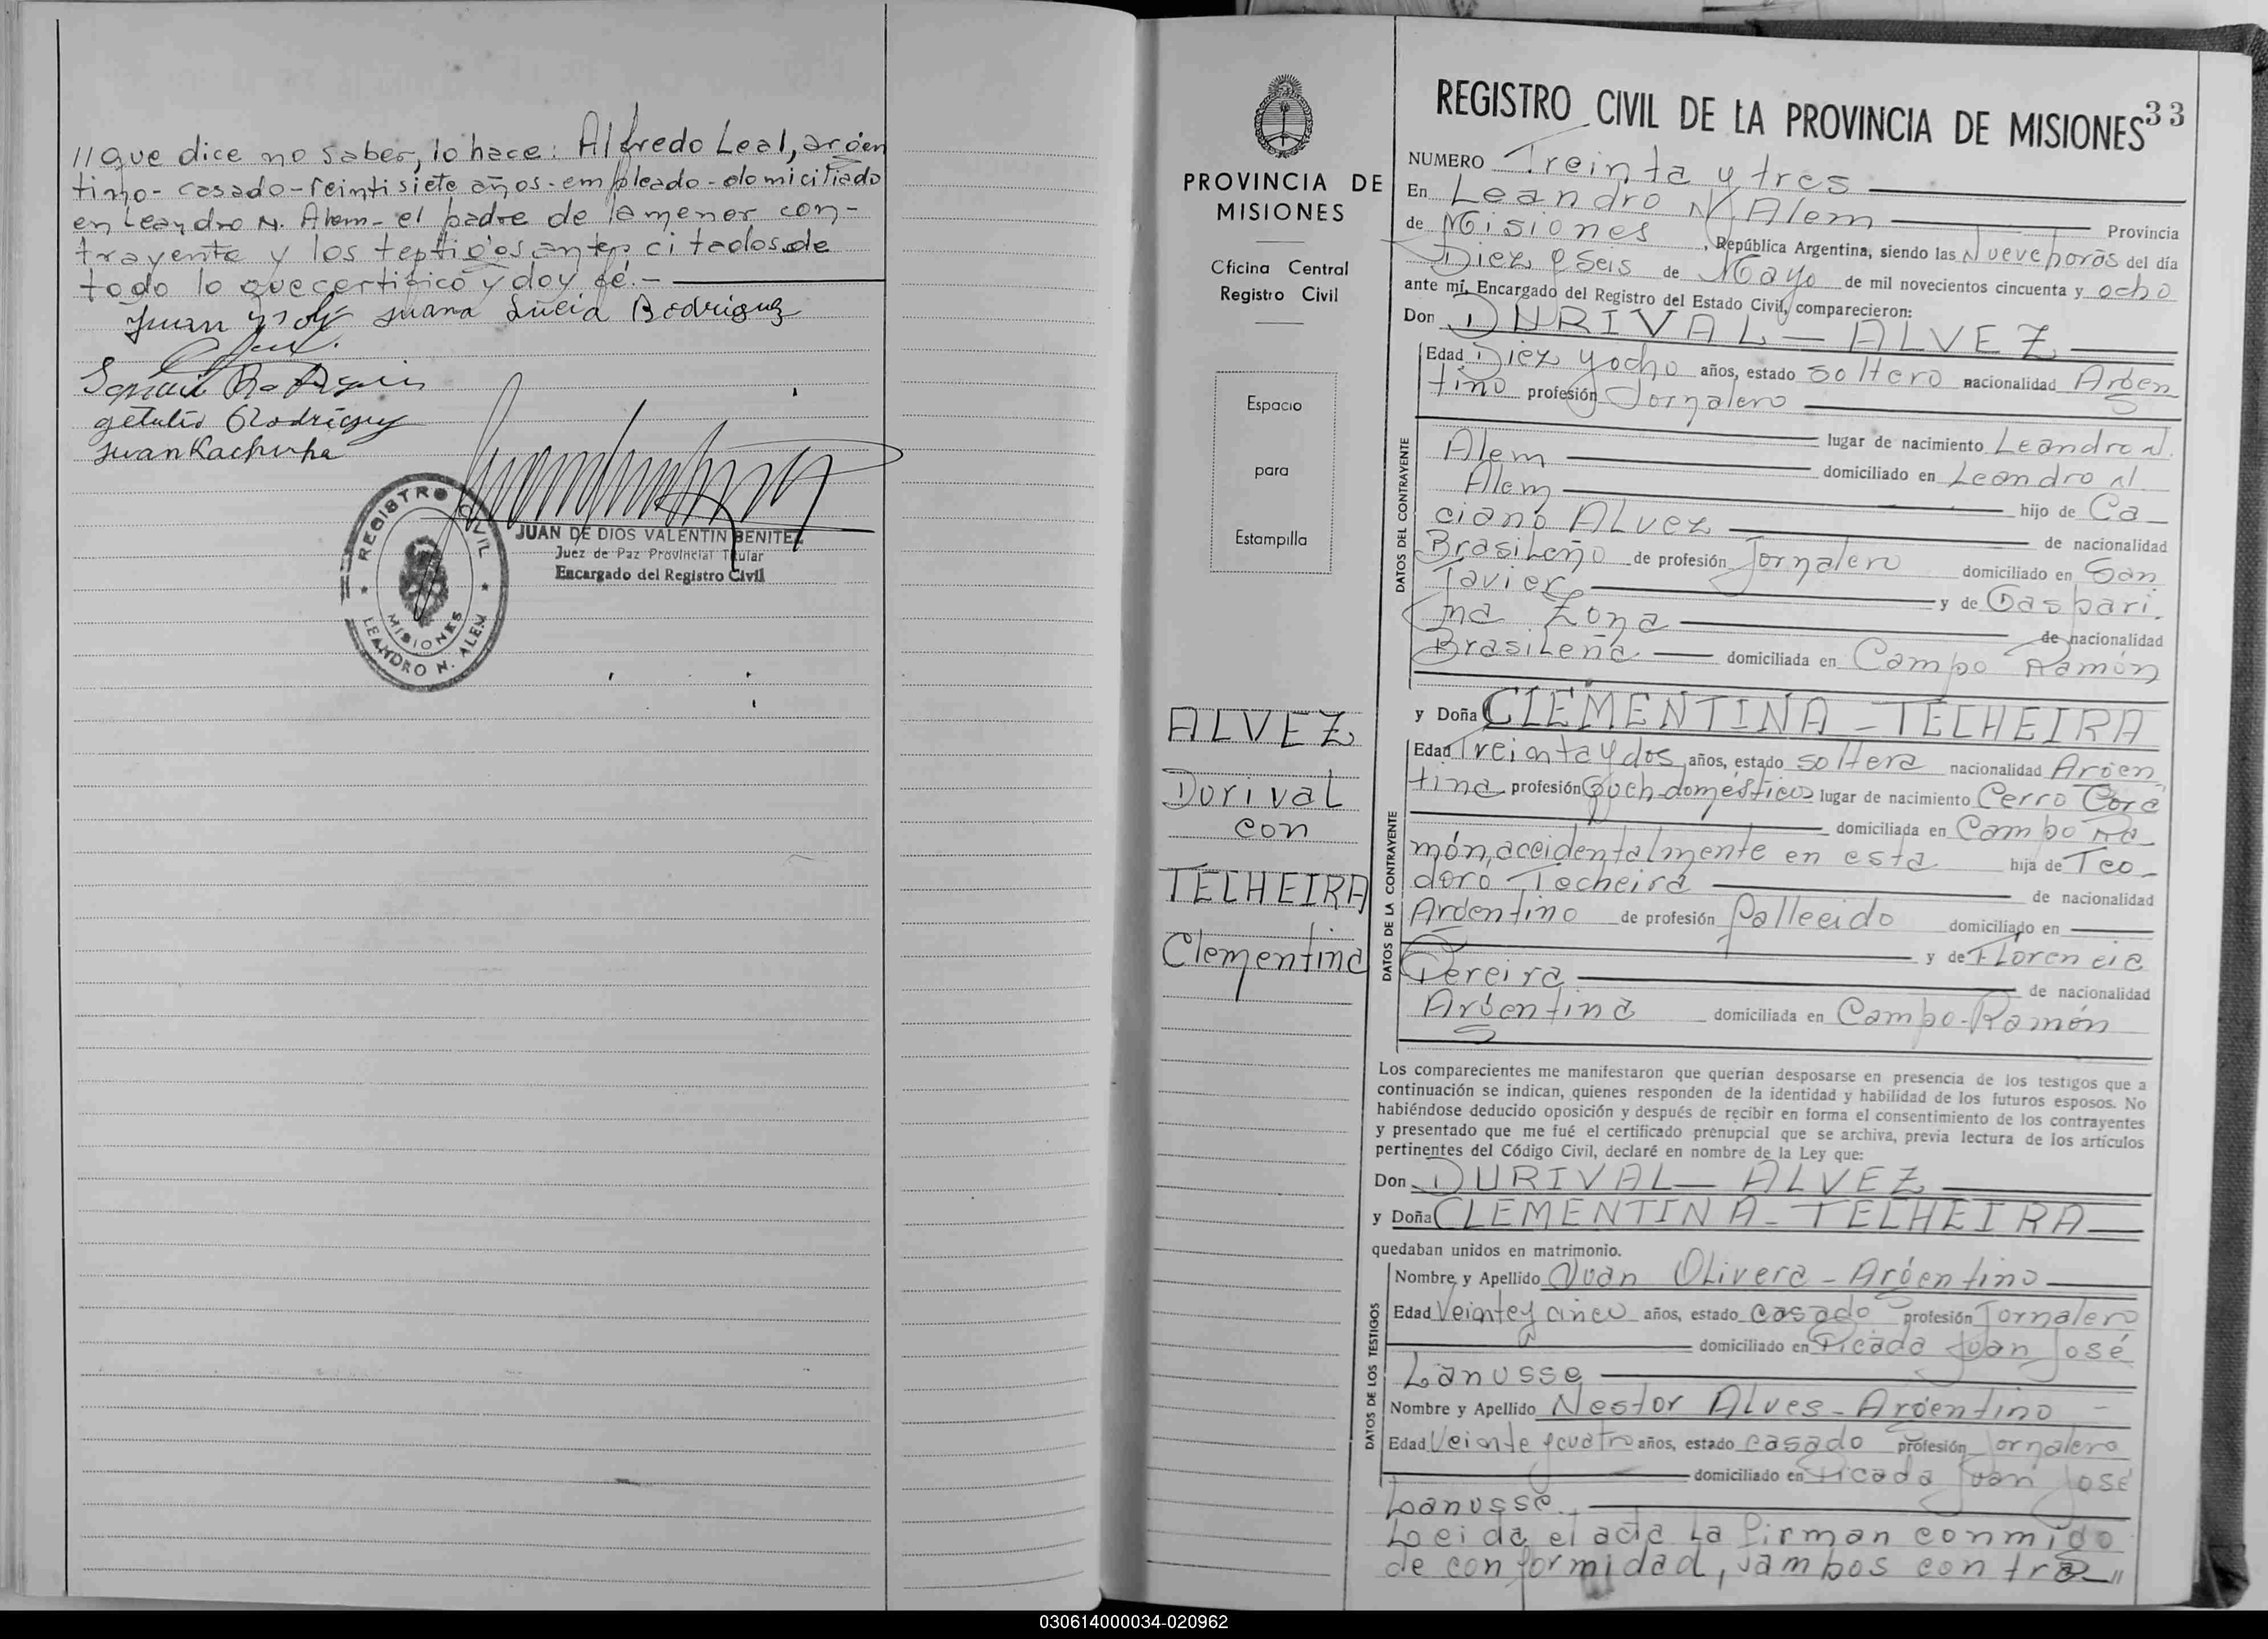 //que dice no saber, lo hace: Alfredo Leal, argen
tino - casado - veintisiete años - empleado - domiciliado
en Leandro N. Alem - el padre de la menor con-
trayente y los testigos antes citados de
todo lo que certifico y doy fé.-
Juan Juana Lucia Rodriguez
getulio Rodriguez
Juan Kachuka
REGISTRO CIVIL
MISIONES
LEANDRO N. ALEM
JUAN DE DIOS VALENTIN BENITEZ
Juez de Paz Provincial Titular
Encargado del Registro Civil
PROVINCIA DE
MISIONES
Oficina Central
Registro Civil
Espacio
para
Estampilla
ALVEZ
Dorival
con
TECHEIRA
Clementina
REGISTRO CIVIL DE LA PROVINCIA DE MISIONES 33
NUMERO Treinta y tres
En Leandro N. Alem Provincia
de Misiones, República Argentina, siendo las Nueve horas del día
Diez y seis de Mayo de mil novecientos cincuenta y ocho
ante mí, Encargado del Registro del Estado Civil, comparecieron:
Don DURIVAL - ALVEZ
Edad Diez y ocho años, estado soltero nacionalidad Argen
tino profesión Jornalero
DATOS DEL CONTRAYENTE
lugar de nacimiento Leandro N.
Alem domiciliado en Leandro N
Alem hijo de Ca-
ciano ALvez de nacionalidad
Brasileño de profesión Jornalero domiciliado en San
Javier y de Gaspari-
na Zona de nacionalidad
Brasileña domiciliada en Campo Ramón
y Doña CLEMENTINA - TECHEIRA
Edad Treinta y dos años, estado soltera nacionalidad Argen
tina profesión Queh-domésticos lugar de nacimiento Cerro Corá
DATOS DE LA CONTRAYENTE
domiciliada en Campo Ra-
món, accidentalmente en esta hija de Teo-
doro Techeira de nacionalidad
Argentino de profesión fallecido domiciliado en
y de Florencia
Pereira de nacionalidad
Argentina domiciliada en Campo-Ramón
Los comparecientes me manifestaron que querían desposarse en presencia de los testigos que a
continuación se indican, quienes responden de la identidad y habilidad de los futuros esposos. No
habiéndose deducido oposición y después de recibir en forma el consentimiento de los contrayentes
y presentado que me fué el certificado prenupcial que se archiva, previa lectura de los artículos
pertinentes del Código Civil, declaré en nombre de la Ley que:
Don DURIVAL - ALVEZ
y Doña CLEMENTINA - TECHEIRA
quedaban unidos en matrimonio.
DATOS DE LOS TESTIGOS
Nombre y Apellido Juan Olivera - Argentino
Edad Veinte y cinco años, estado casado profesión Jornalero
domiciliado en Picada Juan José
Lanusse
Nombre y Apellido Nestor Alves - Argentino -
Edad Veinte y cuatro años, estado casado profesión Jornalero
domiciliado en Picada Juan José
Lanusse.
Leida el acta la firman conmigo
de conformidad, y ambos contra-//
030614000034-020962